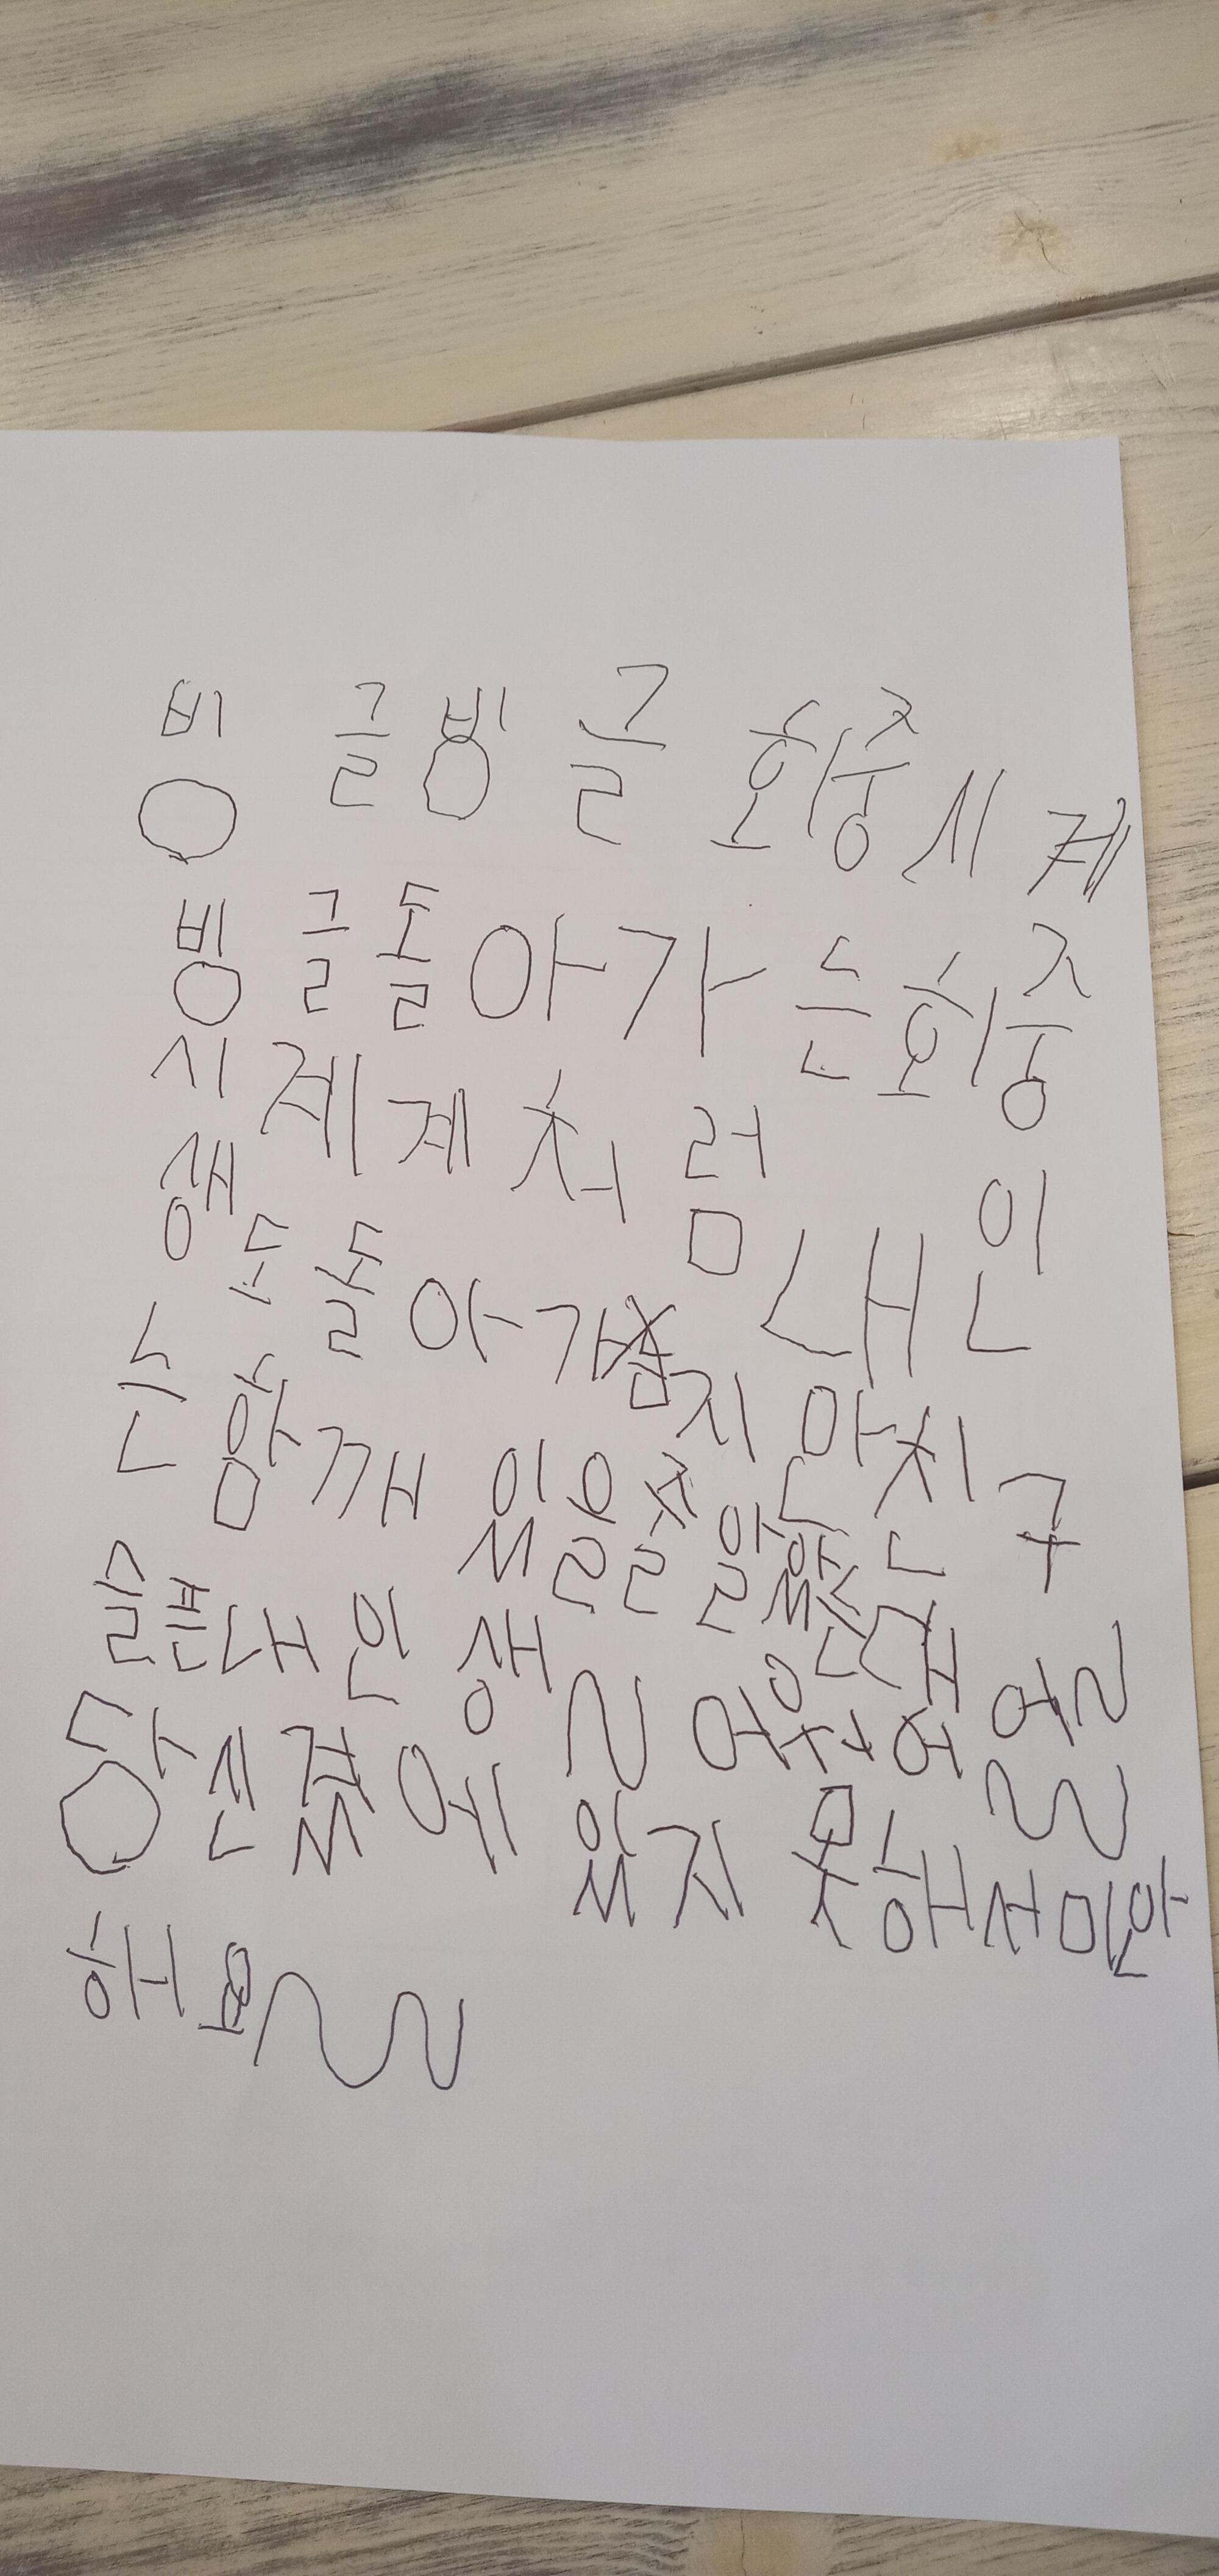 빙글빙글 회중시계
빙글돌아가는회중
시계계처럼 내인
생도돌아가지만 친구
는 함깨 있을줄 알았는대
들른대인생~ 어웠어 어~
당신곁에 있지 못해서미안
해요~~